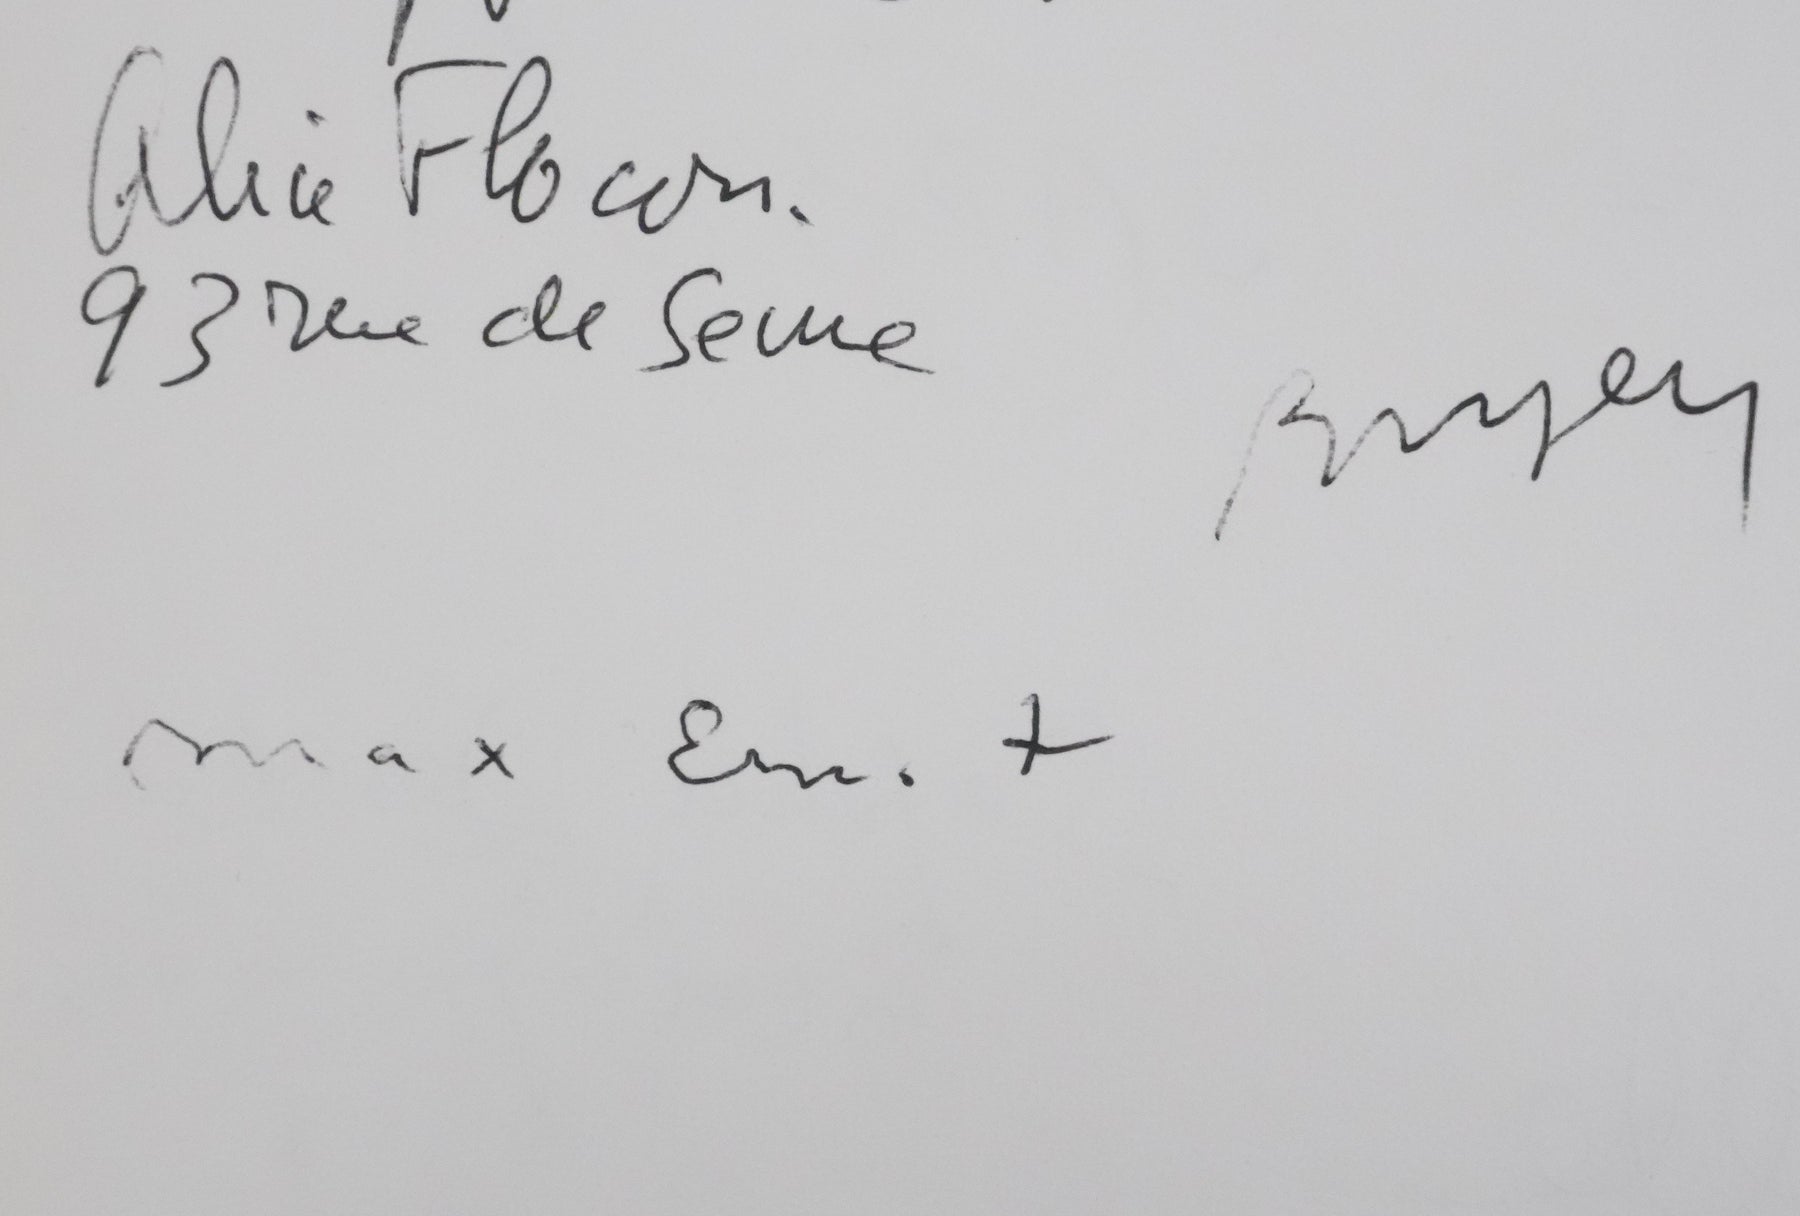 Alice Flocon.
93 rue de Seine
Bryen
max Ern.t